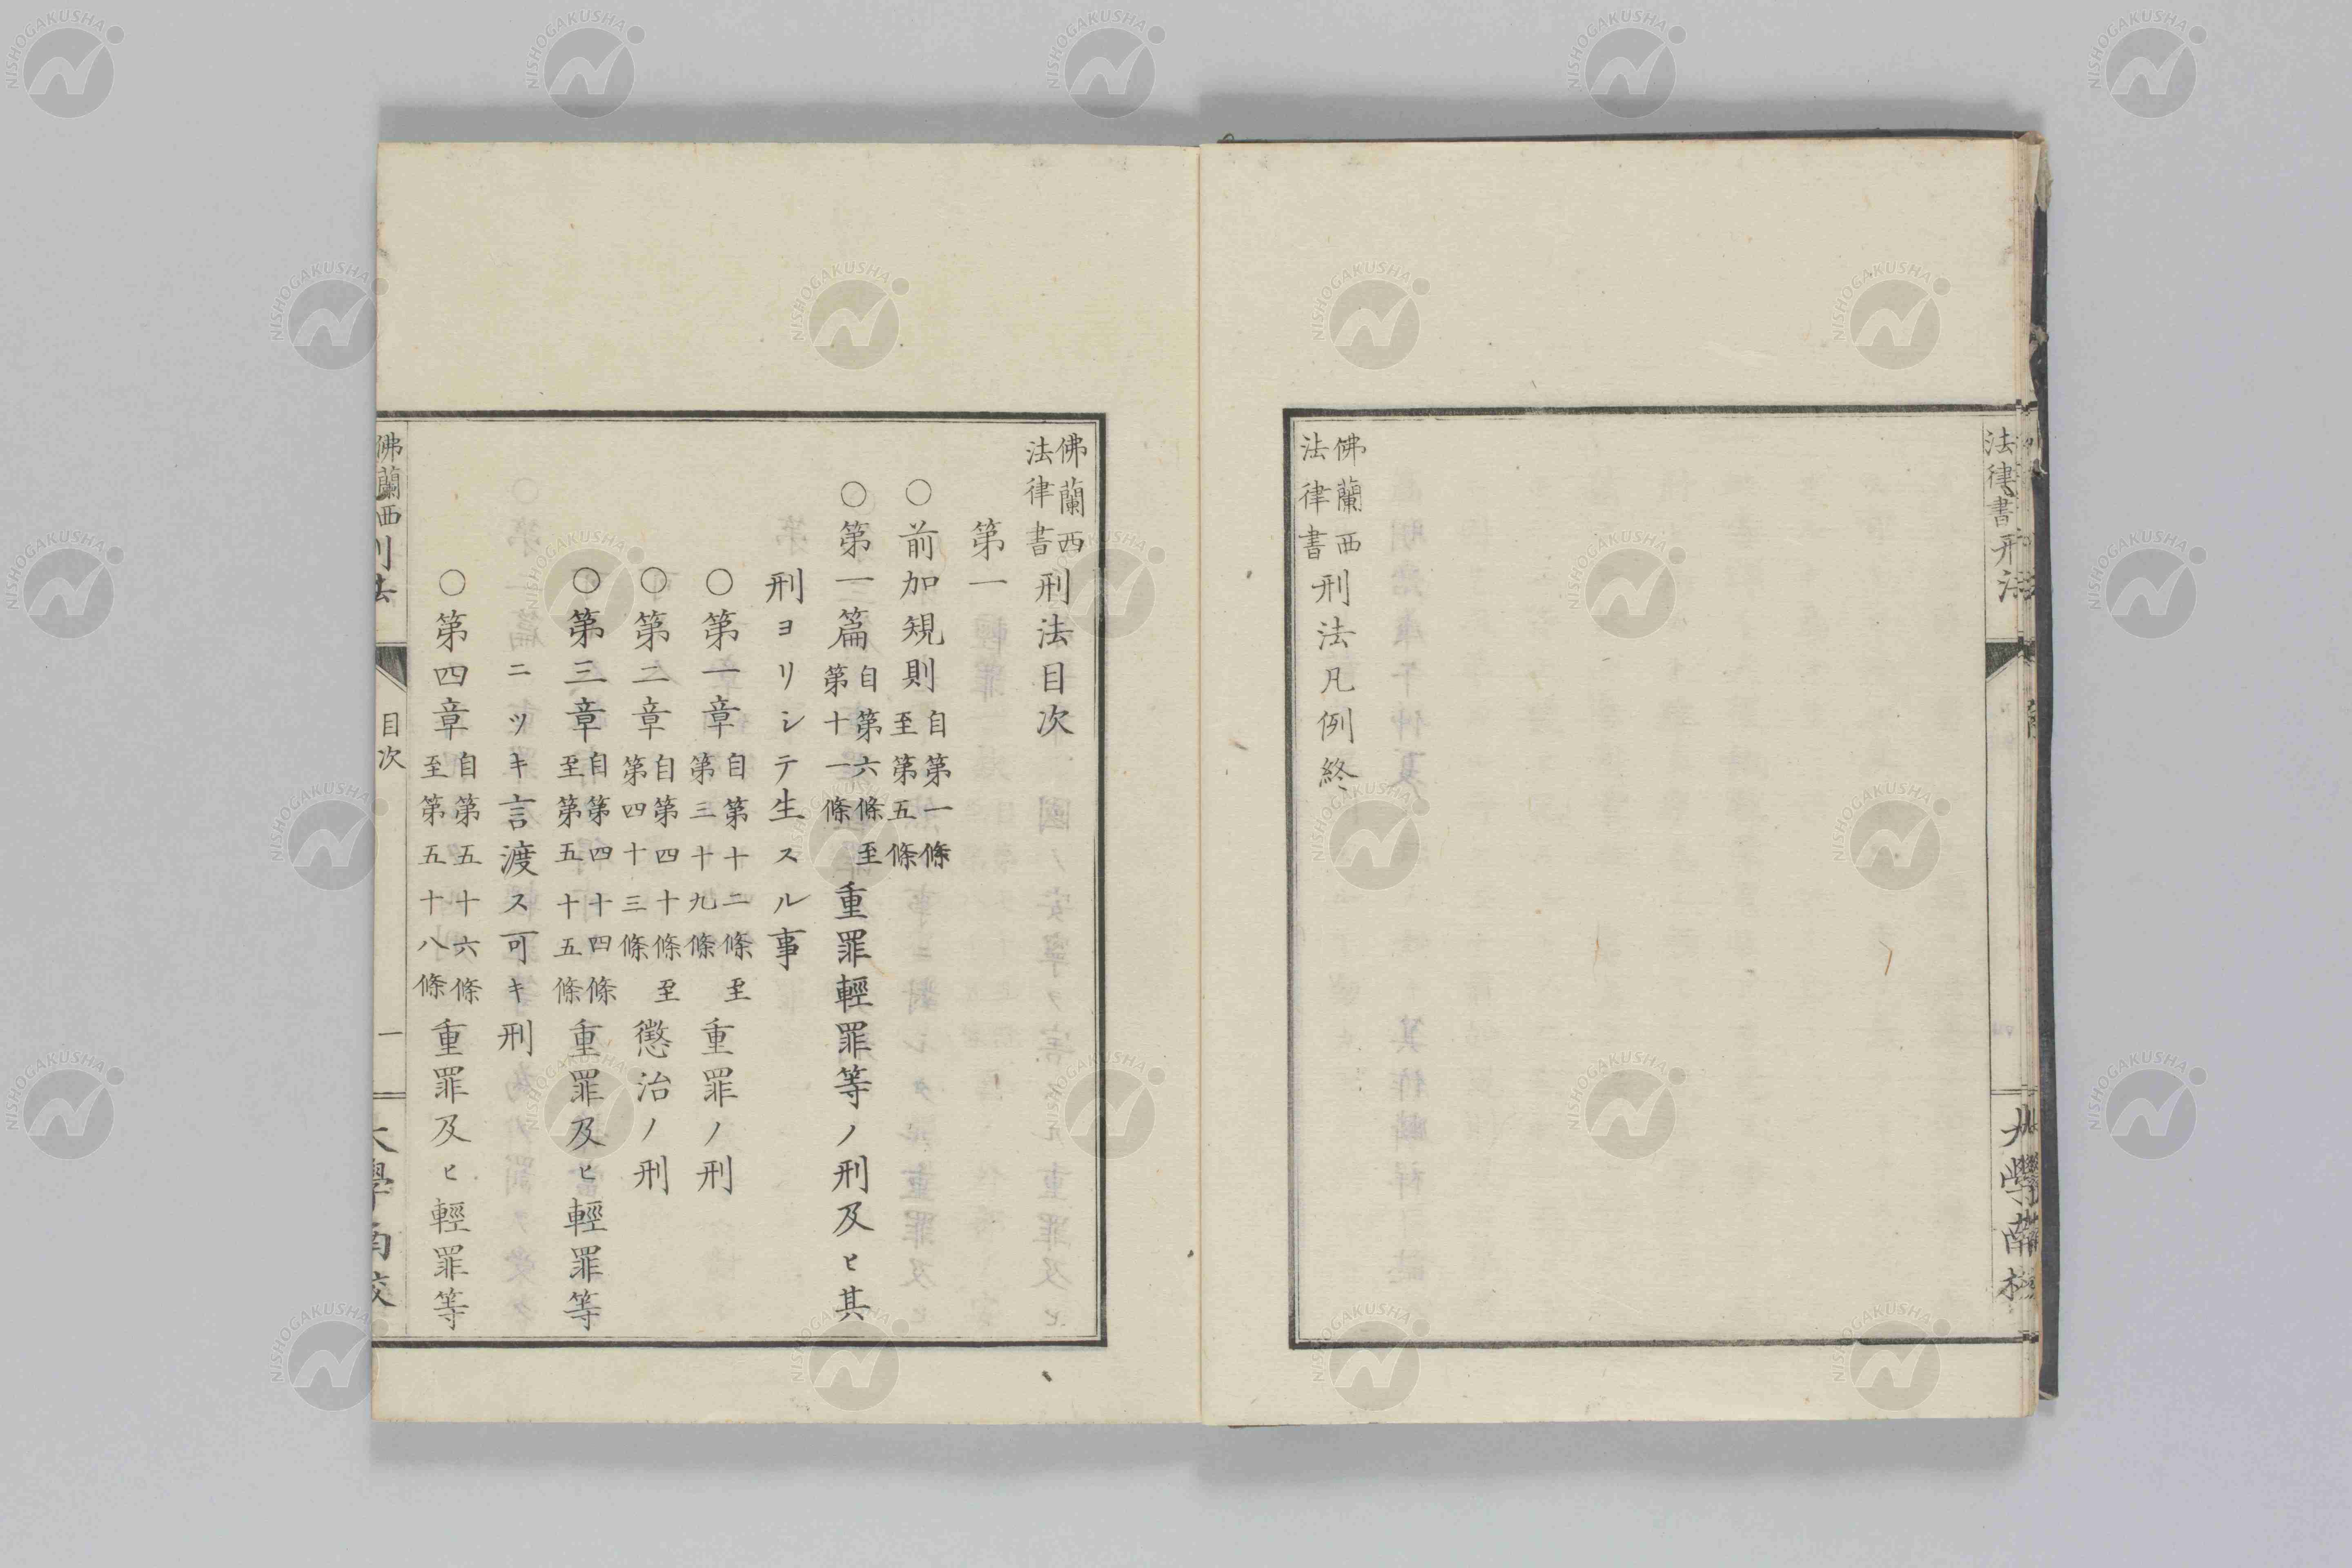 佛蘭西法律書刑法凡例終
佛蘭西法律書刑法目次
第一
○前加規則自第一條至第五條
○第一篇自第六條至第十一條重罪輕罪等ノ刑及ヒ其
刑ヨリシテ生スル事
○第一章自第十二條至第三十九條重罪ノ刑
○第二章自第四十條至第四十三條懲治ノ刑
○第三章自第四十四條至第五十五條重罪及ヒ輕罪等
ニツキ言渡ス可キ刑
○第四章自第五十六條至第五十八條重罪及ヒ輕罪等
佛蘭西刑法
目次
一
大學南校
法律書刑法
大學南校
NISHOGAKUSHA